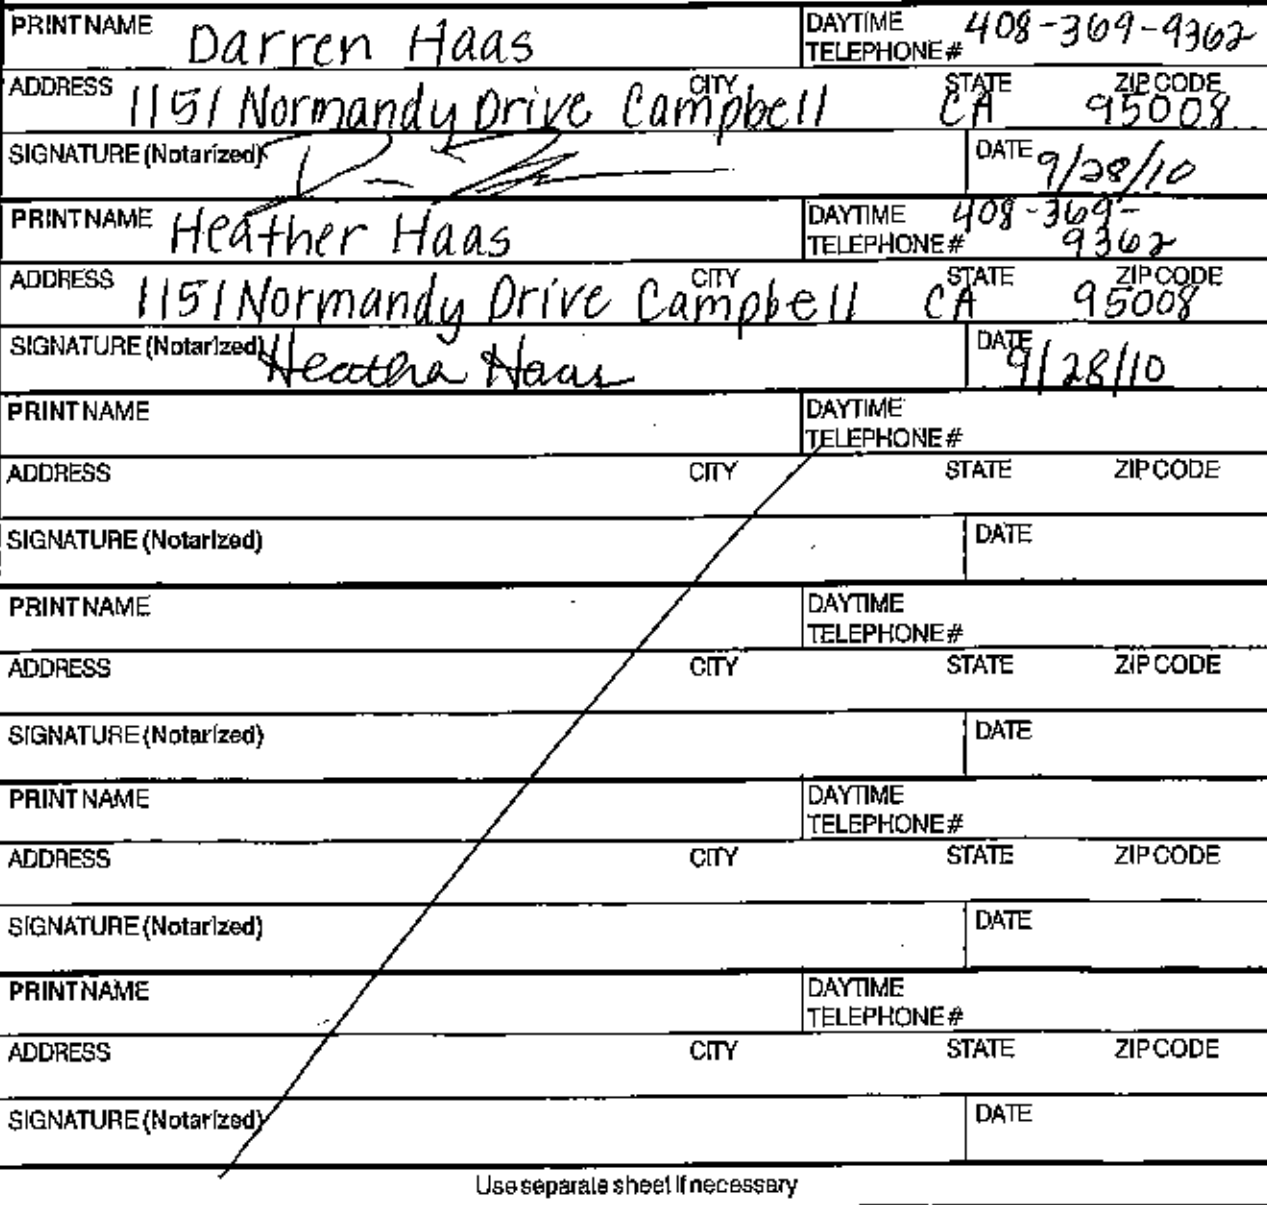 PRINT NAME Darren Haas DAYTIME TELEPHONE # 408-369-9362
ADDRESS 1151 Normandy Drive CITY Campbell STATE CA ZIP CODE 95008
SIGNATURE (Notarized) DATE 9/28/10
PRINT NAME Heather Haas DAYTIME TELEPHONE # 408-369-9362
ADDRESS 1151 Normandy Drive CITY Campbell STATE CA ZIP CODE 95008
SIGNATURE (Notarized) Heather Haas DATE 9/28/10
PRINT NAME DAYTIME TELEPHONE #
ADDRESS CITY STATE ZIP CODE
SIGNATURE (Notarized) DATE
PRINT NAME DAYTIME TELEPHONE #
ADDRESS CITY STATE ZIP CODE
SIGNATURE (Notarized) DATE
PRINT NAME DAYTIME TELEPHONE #
ADDRESS CITY STATE ZIP CODE
SIGNATURE (Notarized) DATE
PRINT NAME DAYTIME TELEPHONE #
ADDRESS CITY STATE ZIP CODE
SIGNATURE (Notarized) DATE
Use separate sheet if necessary